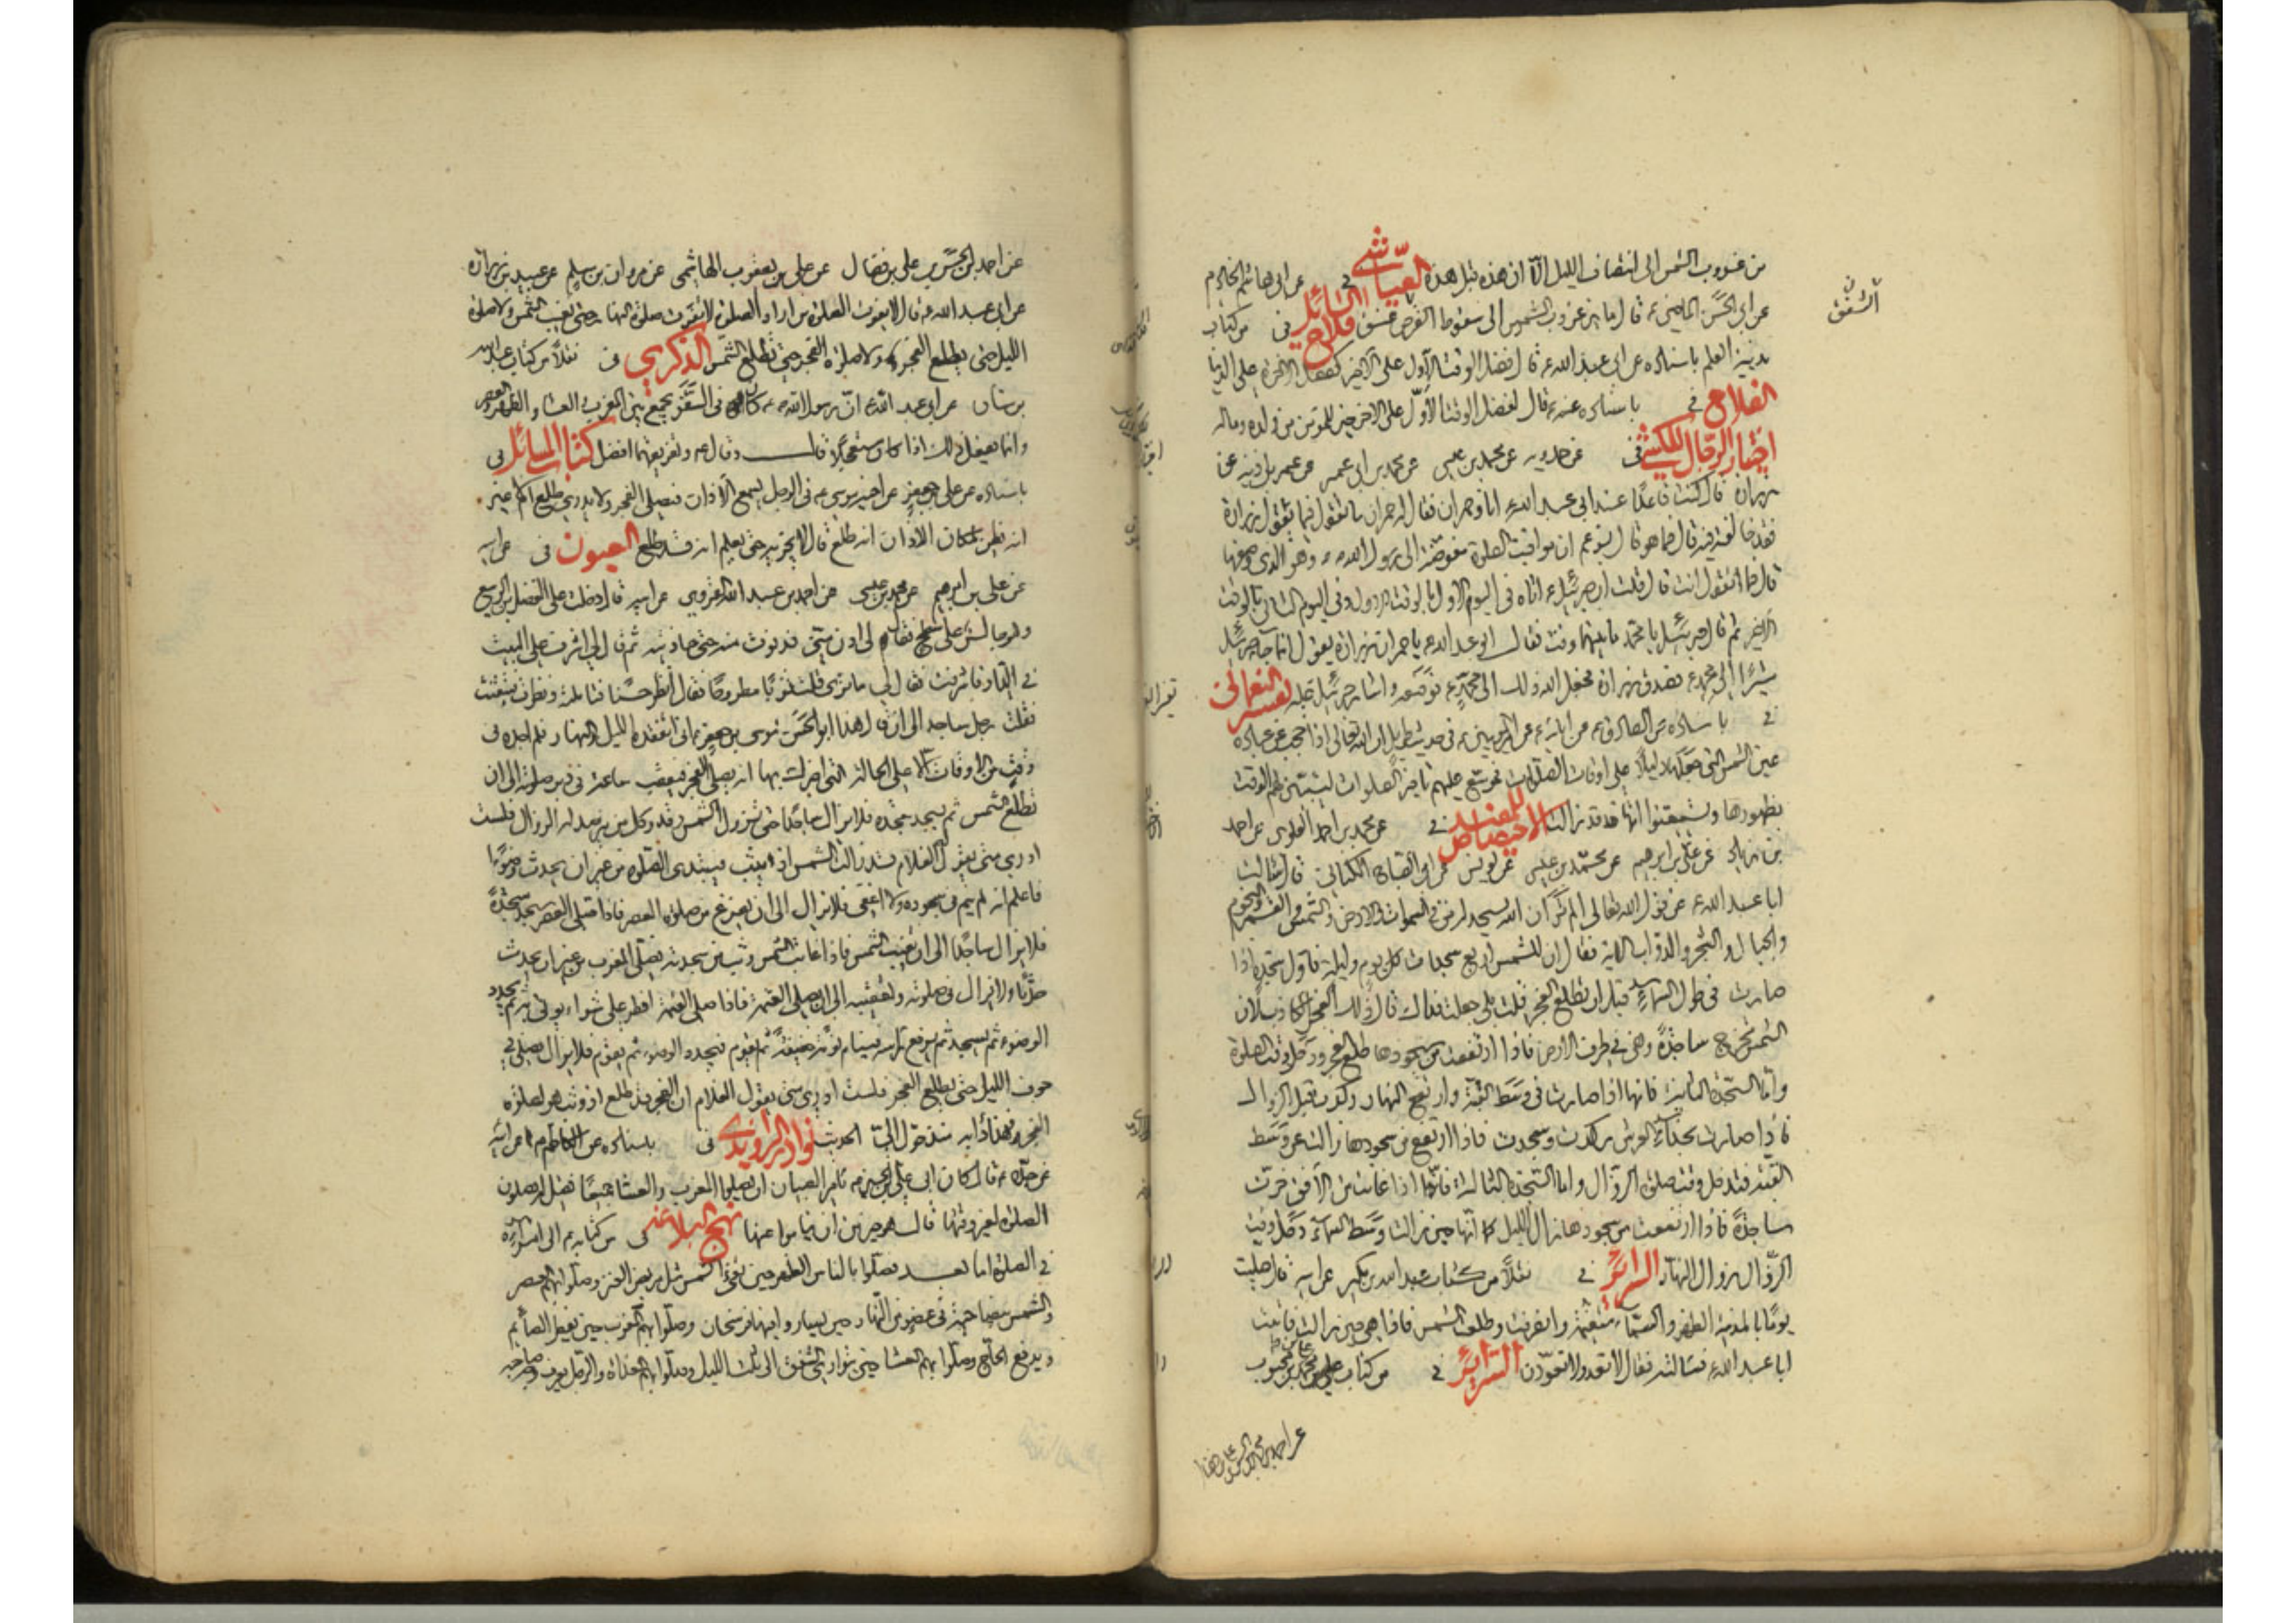 من غروب الشمس الى انتصاف الليل الا ان هذه قبل هذه العيّاشي في عن ابى هاشم الخادم
الشفق
عن ابى الحسن الماضى ع قال ما بين غروب الشمس الى سقوط القرص غسق فلاح السائل فى من كتاب
مدينة العلم باسناده عن ابى عبد الله ع قال فضل الوقت الاول على الاخير كفضل الاخرة على الدنيا
الفلاح فى باسناده عنه ع قال لفضل الوقت الأوّل على الاخير خير للمؤمن من ولده وماله
اختيار الرجال للكشى فى عن حمدويه عن محمد بن عيسى عن محمد بن ابى عمير عن عمر بن اذينة عن
زرارة قال كنت قاعدا عند ابى عبد الله ع انا وحمران فقال له حمران ما تقول فيما يقول زرارة
فقد خالفته فيه قال فما هو قال يزعم ان مواقيت الصلوة مفوضة الى رسول الله ص وهو الذى وضعها
قال فما تقول انت قال قلت ان جبرئيل ع اتاه فى اليوم الاول بالوقت الاول وفى اليوم الثانى بالوقت
الاخير ثم قال جبرئيل يا محمد ما بينهما وقت فقال ابو عبد الله ع يا حمران زرارة يقول انما جاء جبرئيل
مشيرا الى محمد ع صدق زرارة فجعل الله ذلك الى محمد ع فوضعه واشار جبرئيل عليه تفسير النعمانى
فى باسناده عن الصادق ع عن ابائه ع عن امير المؤمنين ع فى حديث طويل ان الله تعالى اذا حجب عن عباده
عين الشمس التى جعلها دليلا على اوقات الصلوات فموسع عليهم تاخير الصلوات ليتبين لهم الوقت
بظهورها ويستيقنوا انها قد زالت الاختصاص للمفيد فى عن محمد بن احمد العلوى عن احمد
بن زياد عن على بن ابرهيم عن محمّد بن عيسى عن يونس عن ابى الصباح الكنانى قال سالت
ابا عبد الله ع عن قول الله تعالى الم تر ان الله يسجد له من فى السموات والارض والشمس والقمر والنجوم
والجبال والشجر والدوّاب الاية فقال ان للشمس اربع سجدات كل يوم وليلة فاول سجدة اذا
صارت فى طول السماء قبل ان يطلع الفجر قلت بلى جعلت فداك قال ذلك الفجر الكاذب لان
الشمس تخرج ساجدة وهى فى طرف الارض فاذا ارتفعت من سجودها طلع الفجر ودخل وقت الصلوة
واما السجدة الثانية فانها اذا صارت فى وسط القبة وارتفع النهار ركدت قبل الزوال
فاذا صارت بحذاء العرش ركدت وسجدت فاذا ارتفع من سجودها زالت عن وسط
القبّة فيدخل وقت صلوة الزوال واما السجدة الثالثة فانها اذا غابت من الافق خرت
ساجدة فاذا ارتفعت من سجودها زال الليل كما انها حين زالت وسط السماء دخل وقت
الزوال زوال النهار السرائر فى نقلا من كتاب عبد الله بن بكير عن ابيه قال صليت
يوما بالمدينة الظهر والسماء متغيمة وانصرفت وطلعت الشمس فاذا هى حين زالت فاتيت
ابا عبد الله ع فسالته فقال لا تعد ولا تعودن السرائر فى من كتاب على بن محبوب
عن احمد بن الحسن
عن احمد بن الحسن بن على بن فضال عن على بن يعقوب الهاشمى عن مروان بن مسلم عن عبيد بن زرارة
عن ابى عبد الله ع قال لا يفوت الصلوة من اراد الصلوة لا تفوت صلوة النهار حتى تغيب الشمس ولا صلوة
الليل حتى يطلع الفجر ولا صلوة الفجر حتى تطلع الشمس الذكرى فى نقلا من كتاب عبد الله
بن سنان عن ابى عبد الله ع ان رسول الله ص كان فى السفر يجمع بين المغرب والعشاء والظهر والعصر
وانما يفعل ذلك اذا كان مستعجلا قال وقال ع وتفريقهما افضل كتاب المسائل فى
باسناده عن على بن جعفر عن اخيه موسى ع فى الرجل يسمع الاذان فيصلى الفجر ولا يدرى طلع ام لا غير
انه يظن لمكان الاذان انه طلع قال لا يجزيه حتى يعلم انه قد طلع العيون فى عن ابيه
عن على بن ابرهيم عن محمد بن عيسى عن احمد بن عبد الله الغروى عن ابيه قال دخلت على الفضل بن الربيع
وهو جالس على سطح فقال لى ادن منى فدنوت منه حتى حاذيته ثم قال لى اشرف على البيت
فى الدار فاشرفت فقال لى ما ترى قلت ثوبا مطروحا فقال انظر حسنا فتاملت ونظرت فتيقنت
فقلت رجل ساجد الى ان قال هذا ابو الحسن موسى بن جعفر ع انى اتفقده الليل والنهار فلم اجده فى
وقت من الاوقات الا على الحالة التى اخبرك بها انه يصلى الفجر فيعقب ساعة فى دبر صلوته الى ان
تطلع الشمس ثم يسجد سجدة فلا يزال ساجدا حتى تزول الشمس وقد وكل من يترصد له الزوال فلست
ادرى متى يقول الغلام قد زالت الشمس اذ يثب فيبتدى الصلوة من غير ان يحدث وضوءا
فاعلم انه لم ينم فى سجوده ولا اغفى فلا يزال الى ان يفرغ من صلوة العصر فاذا صلى العصر سجد سجدة
فلا يزال ساجدا الى ان تغيب الشمس فاذا غابت الشمس وثب من سجدته فصلى المغرب من غير ان يحدث
حدثا ولا يزال فى صلوته وتعقيبه الى ان يصلى العتمة فاذا صلى العتمة افطر على شواء يوتى به ثم يجدد
الوضوء ثم يسجد ثم يرفع راسه فينام نومة خفيفة ثم يقوم فيجدد الوضوء ثم يقوم فلا يزال يصلى فى
جوف الليل حتى يطلع الفجر فلست ادرى متى يقول الغلام ان الفجر قد طلع اذ وثب هو لصلوة
الفجر فهذا دأبه منذ حول الىّ الحديث نوادر الراوندى فى باسناده عن الكاظم ع عن ابيه
عن جده ع قال كان ابى على بن الحسين ع يامر الصبيان ان يصلوا المغرب والعشاء جميعا فقيل له يصلون
الصلوة لغير وقتها قال هو خير من ان يناموا عنها نهج البلاغة فى من كتاب له ع الى امرائه
فى الصلوة اما بعد فصلوا بالناس الظهر حين تفىء الشمس مثل مربض العنز وصلوا بهم العصر
والشمس بيضاء حية فى عضو من النهار حين يسار فيها فرسخان وصلوا بهم المغرب حين يفطر الصائم
ويدفع الحاج وصلوا بهم العشاء حين يتوارى الشفق الى ثلث الليل وصلوا بهم الغداة والرجل يعرف وجه صاحبه